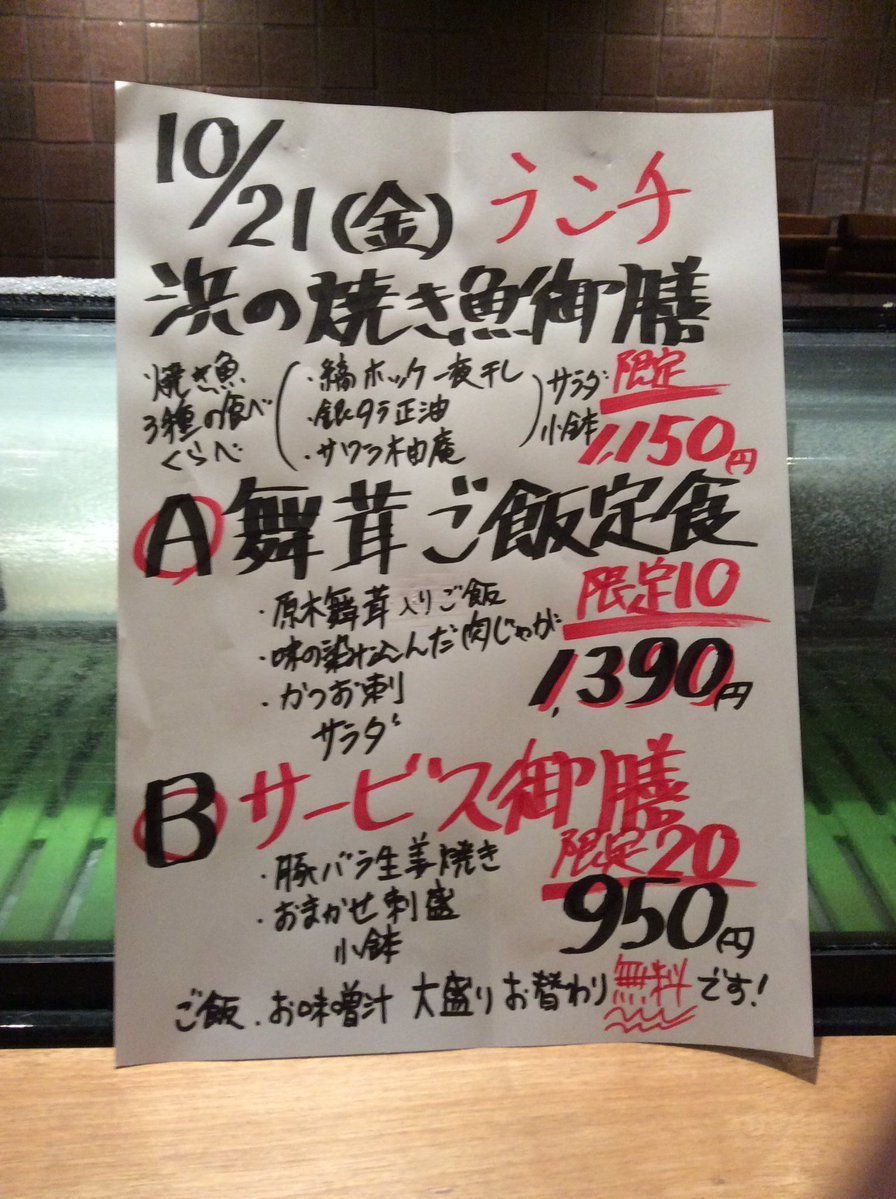 10/21(金) ランチ
浜の焼き魚御膳
焼き魚
3種の食べ
くらべ
・縞ホッケ一夜干し
・銀ダラ正油
・サワラ柚庵
サラダ
小鉢
限定
1,150円
A 舞茸ご飯定食
・原木舞茸入りご飯
限定10
・味の染み込んだ肉じゃが
・かつお刺
1,390円
サラダ
B サービス御膳
・豚バラ生姜焼き
限定20
・おまかせ刺盛
950円
小鉢
ご飯、お味噌汁 大盛り お替わり無料です!